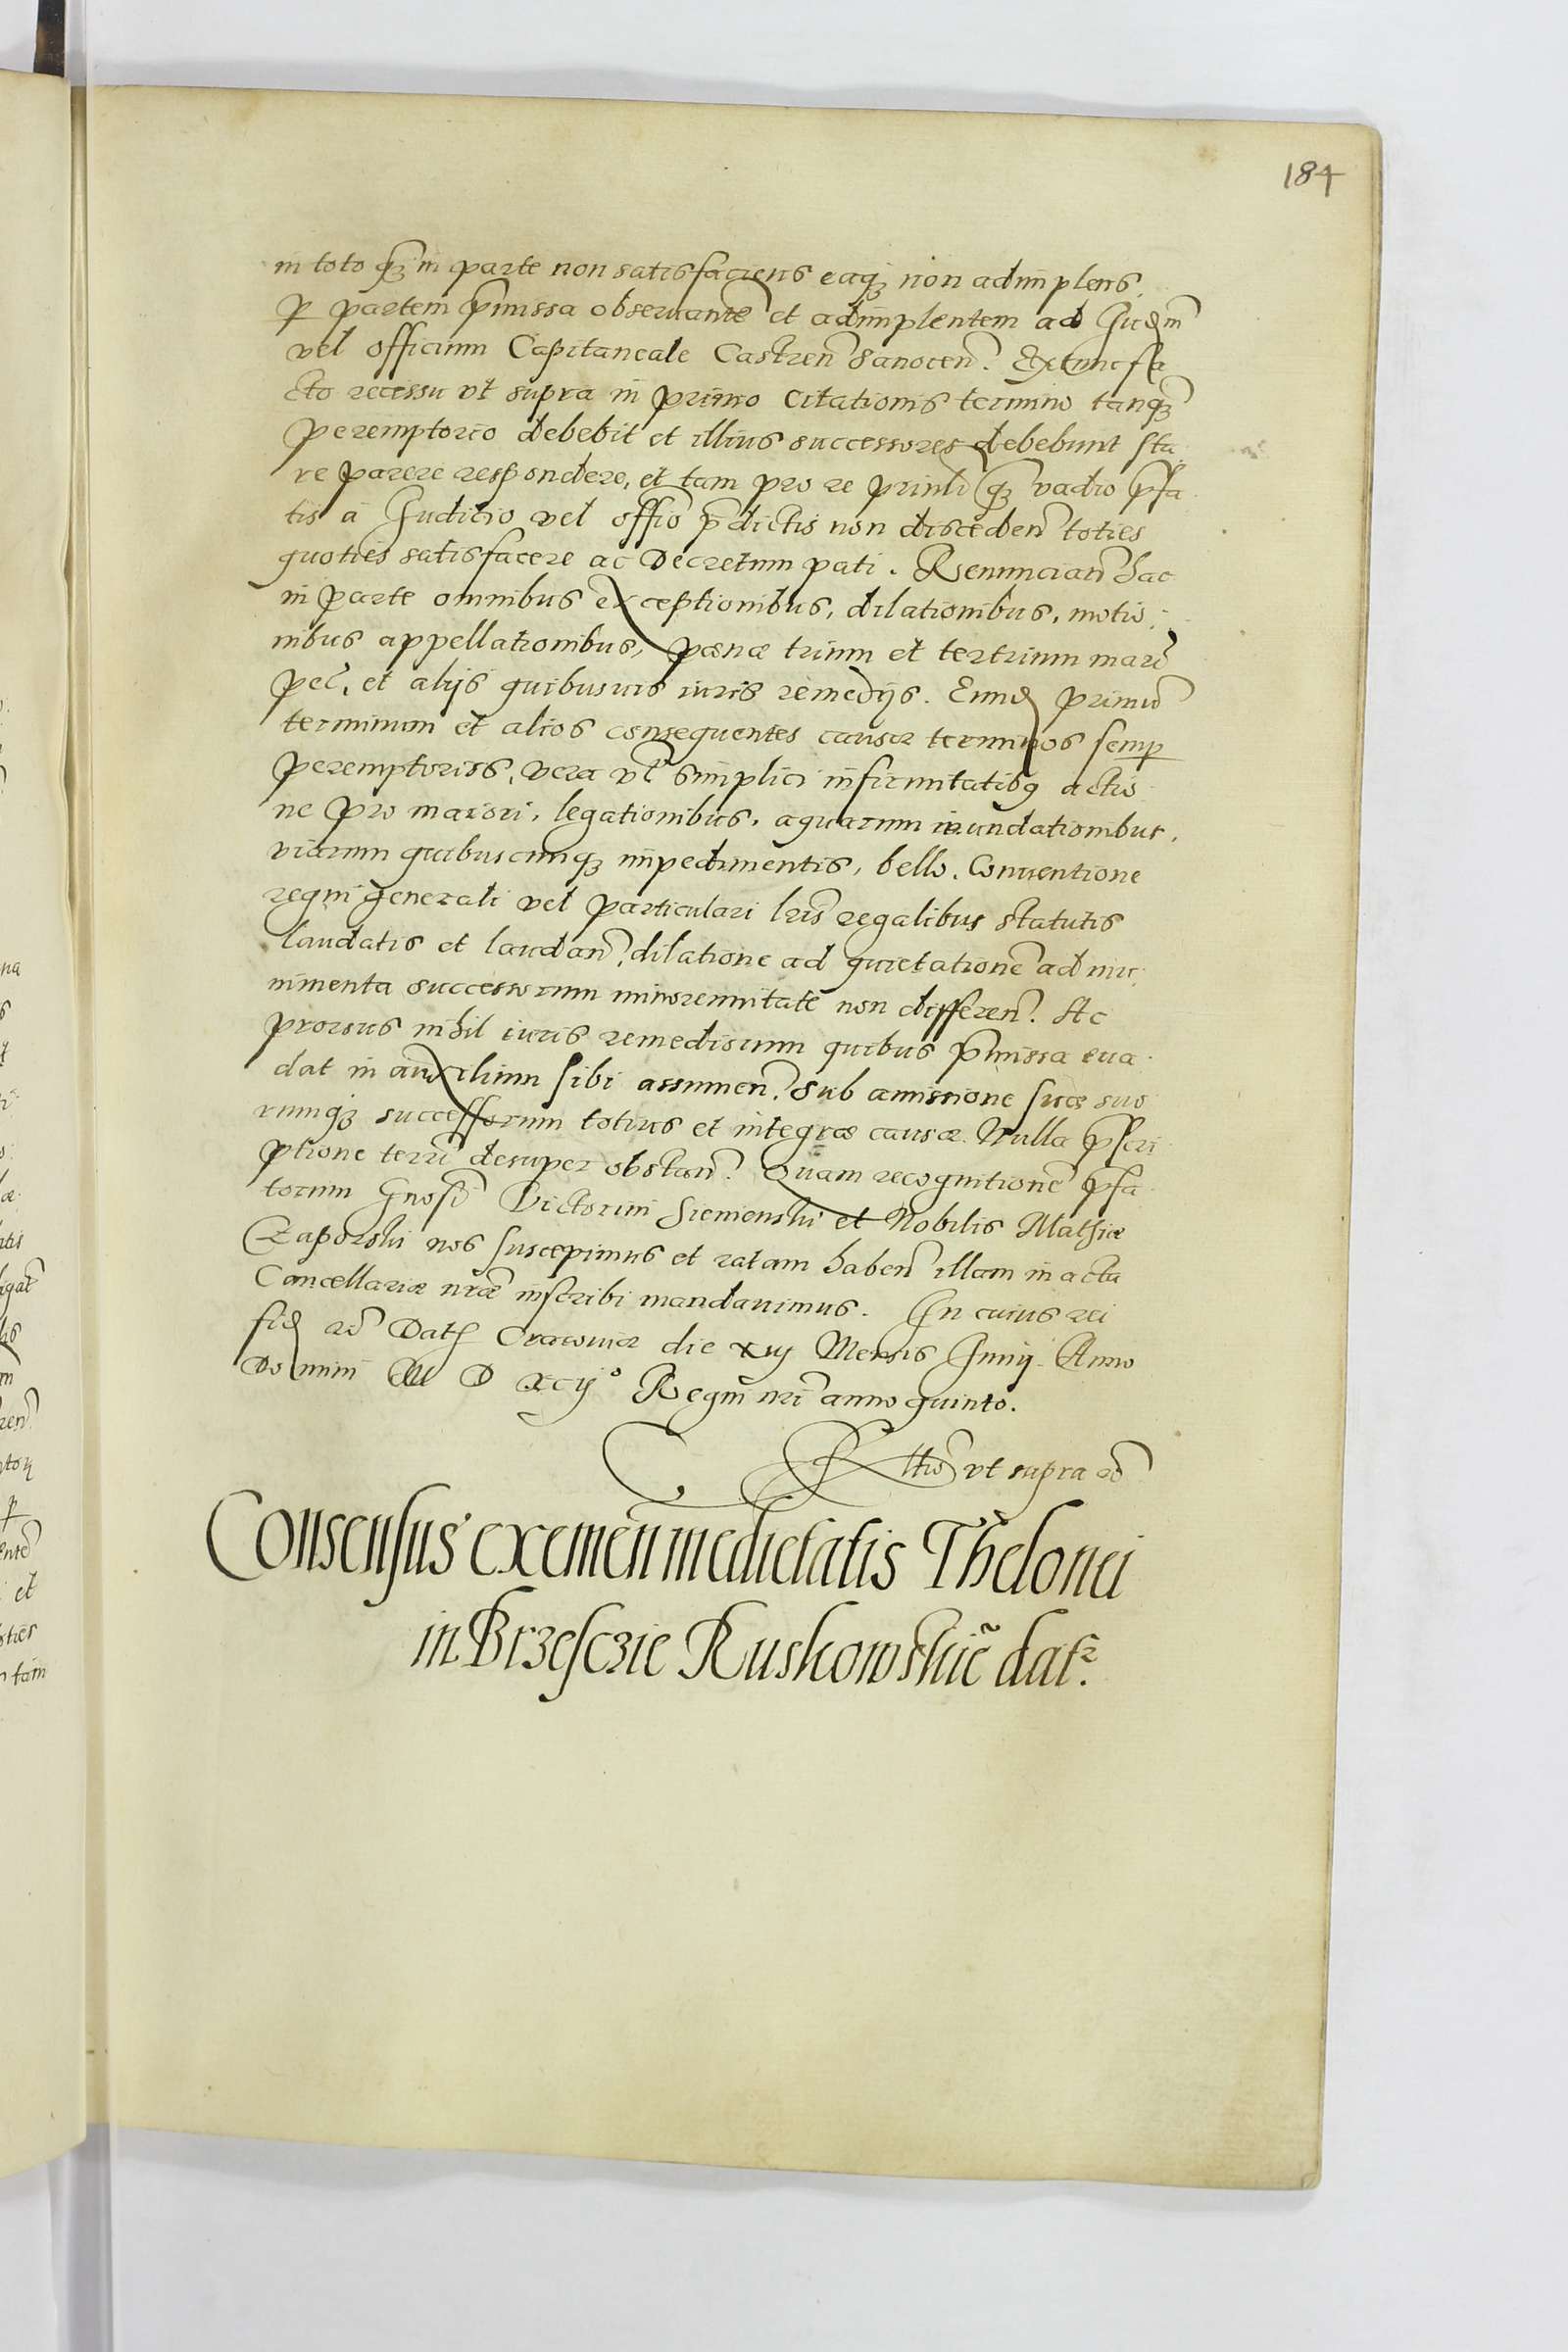 184
in toto q̃ȝ in parte non satisfaciens eaqȝ non adimplens.
P partem p̃missa obseruantẽ et adimplentem ad Iudm̃
vel officium Capitaneale Castreñ Sanoceñ. Extunc fa
cto recessu vt supra in primo citationis termino tanqȝ
peremptorio debebit et illius successores debebunt sta
re parere respondere, et tam pro re prinli q̃ȝ vadio p̃fa
tis a Iuditio vel offio p̃dictis non discedeñ toties
quoties satisfacere ac Decretum pati. Renunciañ hac
in parte omnibus exceptionibus, dilationibus, motio
nibus appellationibus, pœnæ trium et tertrium marc̃
pec̃, et alijs quibusuis iuris remedijs. Eund primũ
terminum et alios consequentes causæ terminos semp
peremptorios, vera vl̃ simplici infirmitatibꝯ actio
ne pro maiori, legationibus, aquarum inundationibus,
viarum quibuscunqȝ impedimentis, bello, Conuentione
regni generali vel particulari lr̃is regalibus statutis
laudatis et laudañ, dilatione ad quietationẽ ad mu
nimenta successorum minorennitate non differeñ. Ac
prorsus nihil iuris remediorum quibus p̃missa eua
dat in auxilium sibi assumeñ. Sub amissione suæ suo
rumqȝ successorum totius et integræ causæ. Nulla p̃scri
ptione terrũ desuper obstañ. Quam recognitionẽ p̃fa
torum Gnosi Victorini Siemenski et Nobilis Mathiæ
Czaporski nos suscepimus et ratam habeñ illam in acta
Cancellariæ nr̃æ inscribi mandauimus. In cuius rei
fid rc̃ Dat Cracouiæ die xiij Mensis Iunij. Anno
Domini M D xcij° Regni nr̃i anno quinto.
Rltio vt supra rc̃
Consensus exemeñ medietatis Thelonei
in Brzesczie Ruskowskiẽ dat.